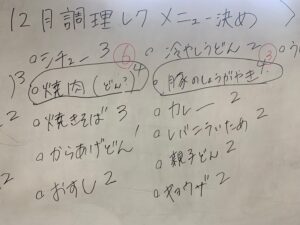 12月調理レク メニュー決め
○シチュー 3 ⑥
○冷やしうどん 2 ③
○う
)3
○焼肉(どん?) 4
○豚のしょうがやき 4
2
○焼きそば 3
○カレー 2
○からあげどん 1
○レバニラいため 2
2
○おすし 2
○親子どん 2
○ギョウザ 2